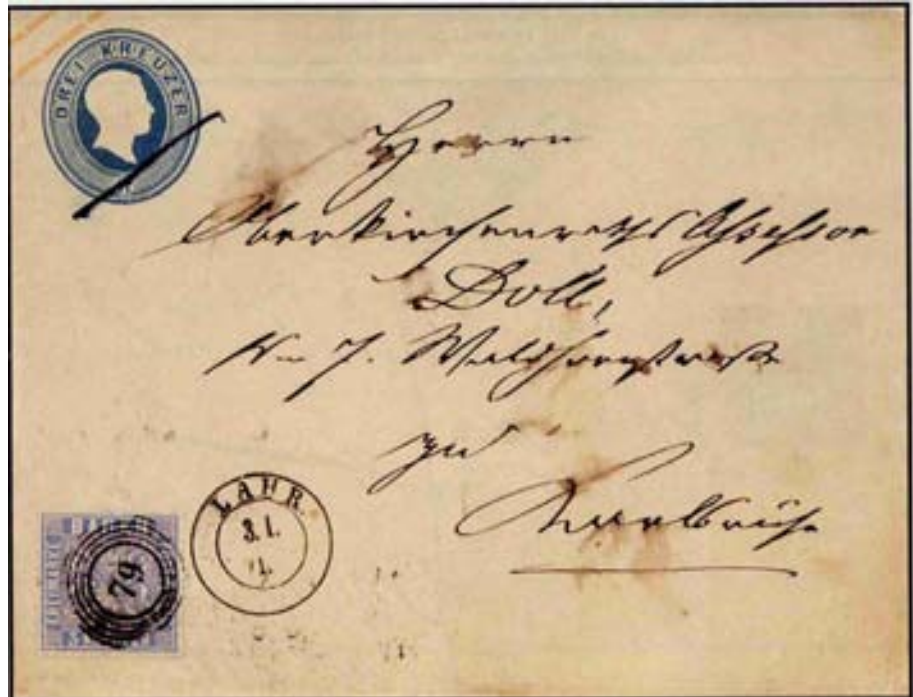 DREI KREUZER
Herrn
Oberkirchenraths Assessor
Doll,
N 7. Waldhornstraße
zu
Karlsruhe
LAHR.
3. 1.
79